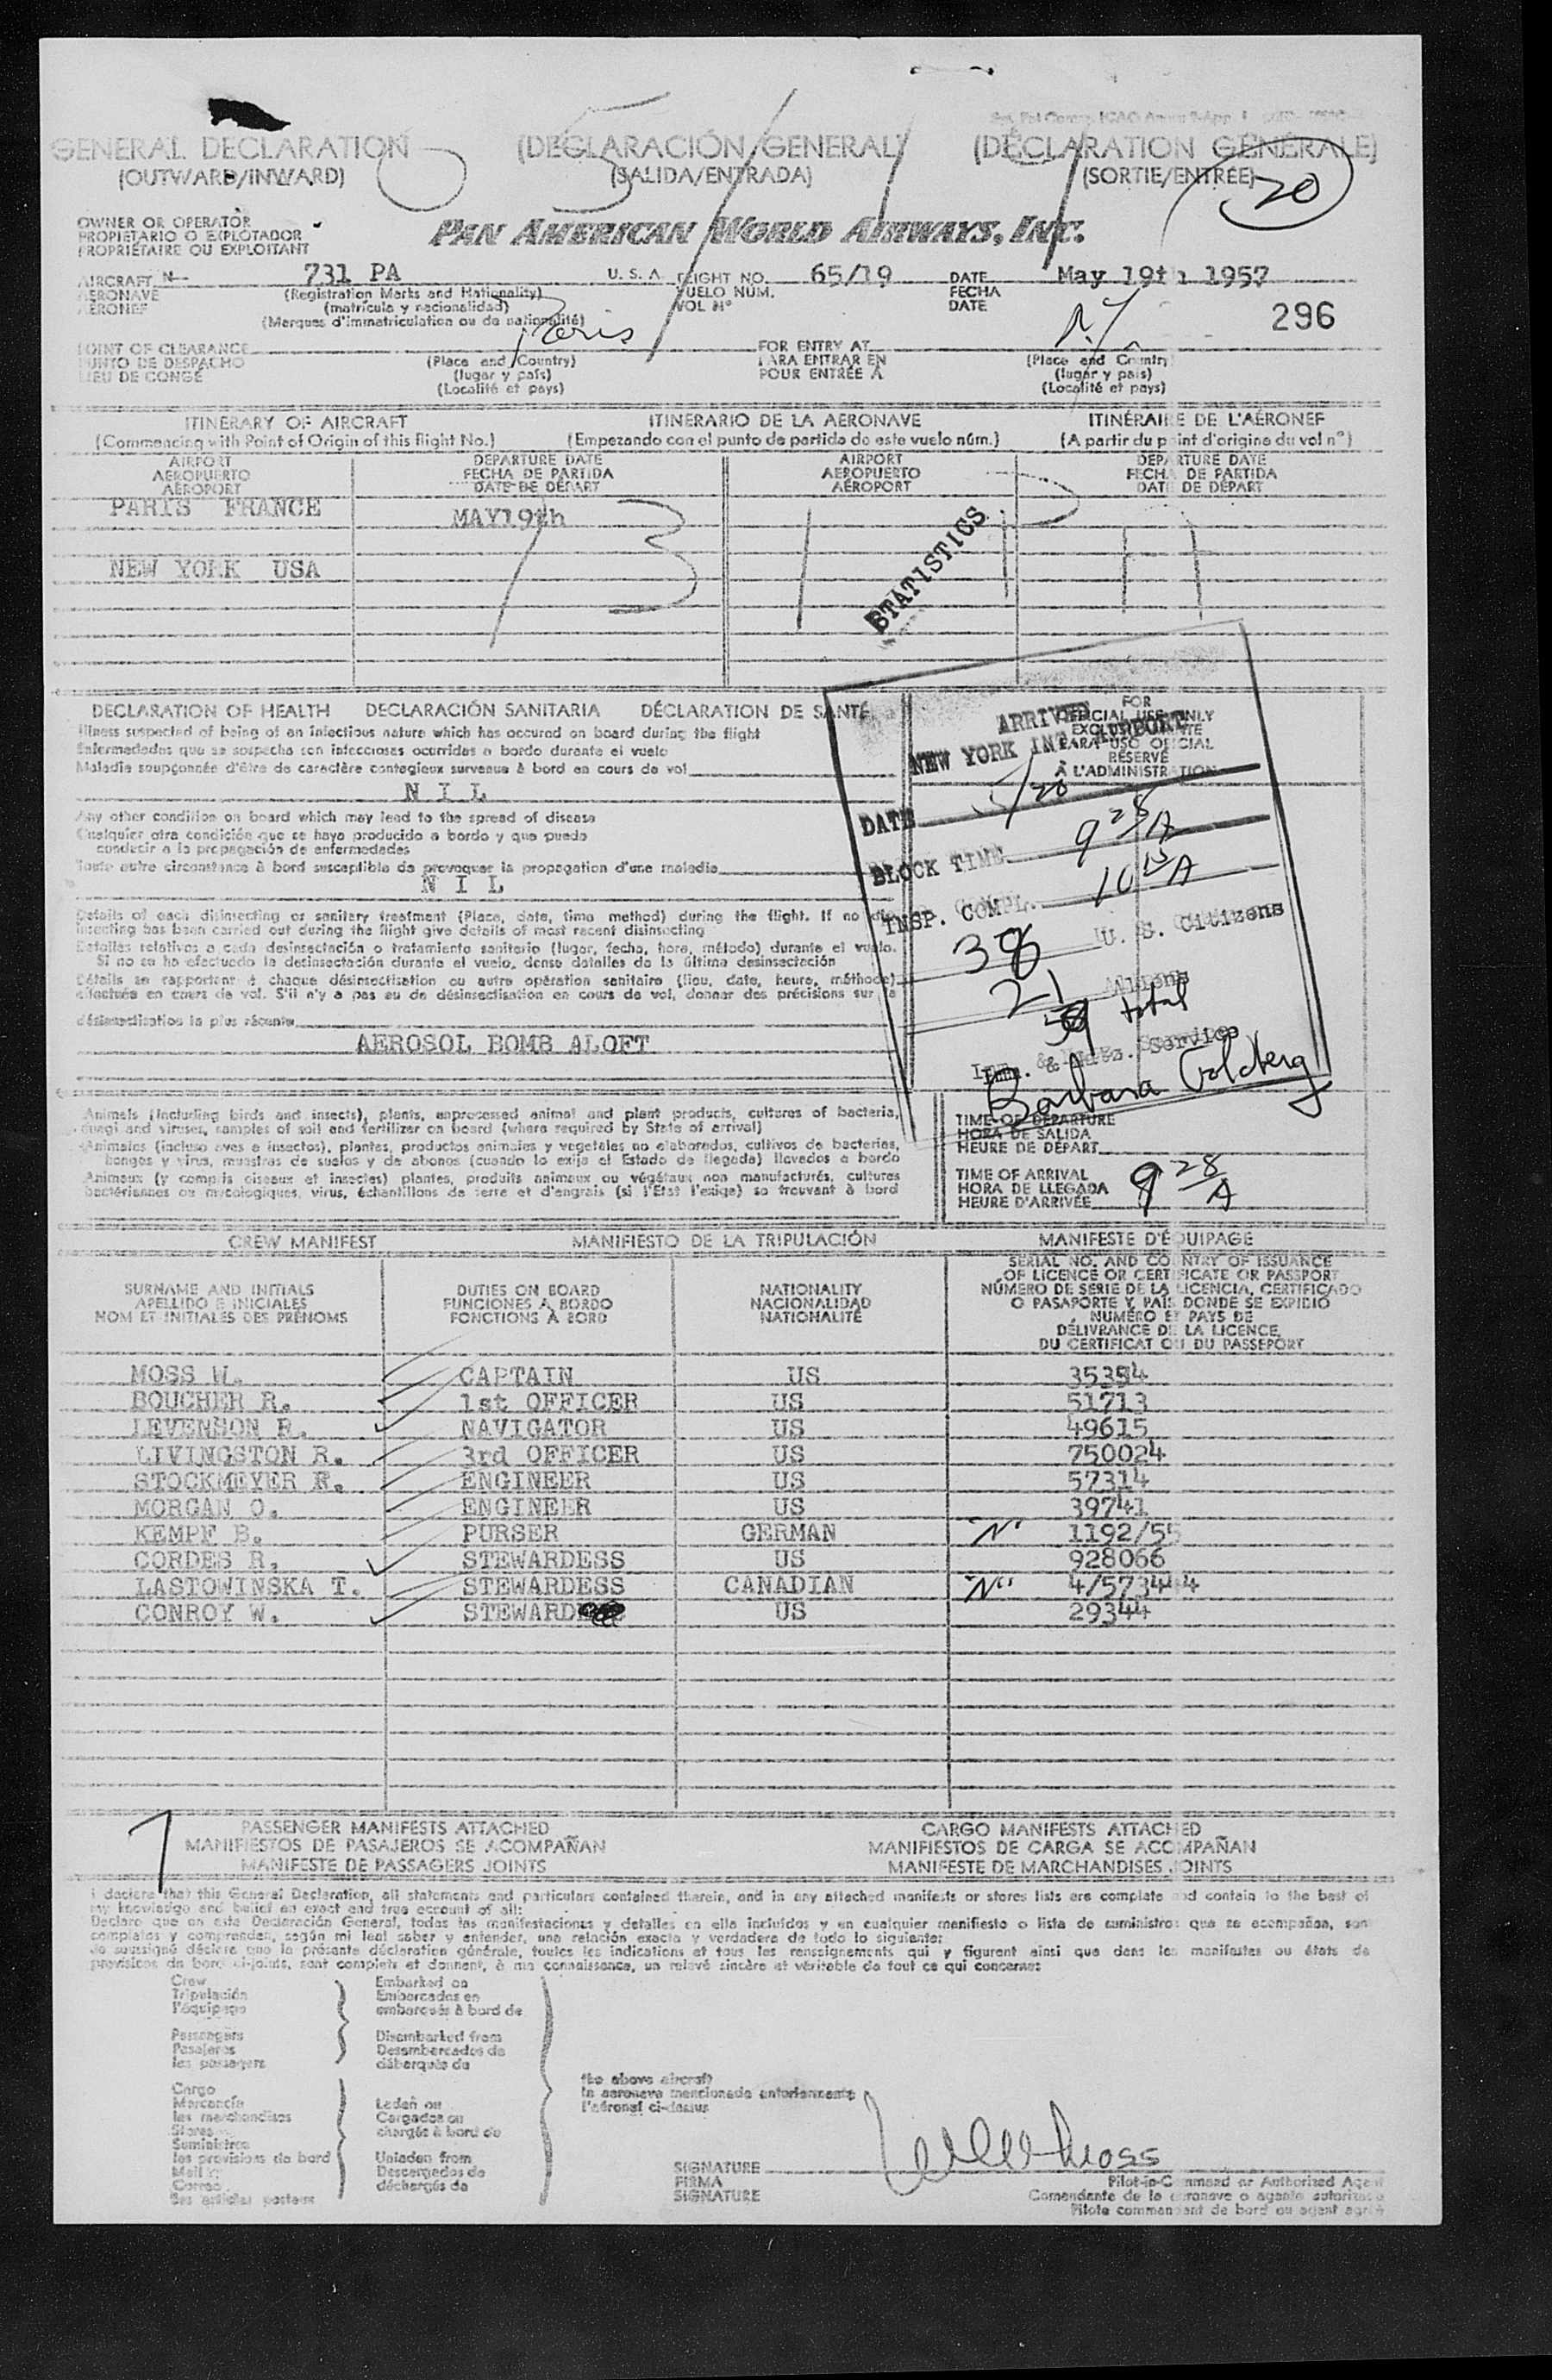 GENERAL DECLARATION (DECLARACIÓN GENERAL) (DÉCLARATION GÉNÉRALE)
(OUTWARD/INWARD) (SALIDA/ENTRADA) (SORTIE/ENTRÉE)
20
OWNER OR OPERATOR
PROPIETARIO O EXPLOTADOR
PROPRIÉTAIRE OU EXPLOITANT
PAN AMERICAN WORLD AIRWAYS, INC.
AIRCRAFT N- 731 PA U. S. A. FLIGHT NO. 65/19 DATE May 19th 1957
AERONAVE (Registration Marks and Nationality) VUELO NÚM. FECHA
AÉRONEF (matrícula y nacionalidad) VOL Nº DATE
(Marques d'immatriculation ou de nationalité)
296
POINT OF CLEARANCE Paris FOR ENTRY AT N.Y.
PUNTO DE DESPACHO (Place and Country) PARA ENTRAR EN (Place and Country)
LIEU DE CONGÉ (lugar y país) POUR ENTRÉE À (lugar y país)
(Localité et pays) (Localité et pays)
ITINERARY OF AIRCRAFT ITINERARIO DE LA AERONAVE ITINÉRAIRE DE L'AÉRONEF
(Commencing with Point of Origin of this flight No.) (Empezando con el punto de partida de este vuelo núm.) (A partir du point d'origine du vol nº)
AIRPORT DEPARTURE DATE AIRPORT DEPARTURE DATE
AEROPUERTO FECHA DE PARTIDA AEROPUERTO FECHA DE PARTIDA
AÉROPORT DATE DE DÉPART AÉROPORT DATE DE DÉPART
PARIS FRANCE MAY19th
STATISTICS
NEW YORK USA
DECLARATION OF HEALTH DECLARACIÓN SANITARIA DÉCLARATION DE SANTÉ
Illness suspected of being of an infectious nature which has occured on board during the flight
Enfermedades que se sospecha son infecciosas ocurridas a bordo durante el vuelo
Maladie soupçonnée d'être de caractère contagieux survenue à bord en cours de vol
N I L
Any other condition on board which may lead to the spread of disease
Cualquier otra condición que se haya producido a bordo y que pueda
conducir a la propagación de enfermedades
Toute autre circonstance à bord susceptible de provoquer la propagation d'une maladie
N I L
Details of each disinsecting or sanitary treatment (Place, date, time method) during the flight. If no dis-
insecting has been carried out during the flight give details of most recent disinsecting
Detalles relativos a cada desinsectación o tratamiento sanitario (lugar, fecha, hora, método) durante el vuelo.
Si no se ha efectuado la desinsectación durante el vuelo, dense detalles de la última desinsectación
Détails se rapportant à chaque désinsectisation ou autre opération sanitaire (lieu, date, heure, méthode)
effectuée en cours de vol. S'il n'y a pas eu de désinsectisation en cours de vol, donner des précisions sur la
désinsectisation la plus récente
AEROSOL BOMB ALOFT
FOR
OFFICIAL USE ONLY
EXCLUSIVAMENTE
PARA USO OFICIAL
RÉSERVÉ
À L'ADMINISTRATION
ARRIVED
NEW YORK INT. AIRPORT
DATE 5/20
BLOCK TIME 9 28 A
INSP. COMPL. 10 15 A
38 U. S. Citizens
21 Aliens
59 total
Imm. & Natz. Service
Barbara Goldberg
Animals (including birds and insects), plants, unprocessed animal and plant products, cultures of bacteria,
fungi and viruses, samples of soil and fertilizer on board (where required by State of arrival)
Animales (incluso aves e insectos), plantas, productos animales y vegetales no elaborados, cultivos de bacterias,
hongos y virus, muestras de suelos y de abonos (cuando lo exija el Estado de llegada) llevados a bordo
Animaux (y compris oiseaux et insectes) plantes, produits animaux ou végétaux non manufacturés, cultures
bactériennes ou mycologiques, virus, échantillons de terre et d'engrais (si l'État l'exige) se trouvant à bord
TIME OF DEPARTURE
HORA DE SALIDA
HEURE DE DÉPART
TIME OF ARRIVAL
HORA DE LLEGADA 9 28 A
HEURE D'ARRIVÉE
CREW MANIFEST MANIFIESTO DE LA TRIPULACIÓN MANIFESTE D'ÉQUIPAGE
SURNAME AND INITIALS DUTIES ON BOARD NATIONALITY SERIAL NO. AND COUNTRY OF ISSUANCE
APELLIDO E INICIALES FUNCIONES A BORDO NACIONALIDAD OF LICENCE OR CERTIFICATE OR PASSPORT
NOM ET INITIALES DES PRÉNOMS FONCTIONS À BORD NATIONALITÉ NÚMERO DE SERIE DE LA LICENCIA, CERTIFICADO
O PASAPORTE Y PAÍS DONDE SE EXPIDIÓ
NUMÉRO ET PAYS DE
DÉLIVRANCE DE LA LICENCE,
DU CERTIFICAT OU DU PASSEPORT
MOSS W. CAPTAIN US 35354
BOUCHER R. 1st OFFICER US 51713
LEVENSON R. NAVIGATOR US 49615
LIVINGSTON R. 3rd OFFICER US 750024
STOCKMEYER F. ENGINEER US 57314
MORGAN O. ENGINEER US 39741
KEMPF B. PURSER GERMAN 1192/55
CORDES R. STEWARDESS US 928066
LASTOWINSKA T. STEWARDESS CANADIAN 4/573444
CONROY W. STEWARD US 29344
PASSENGER MANIFESTS ATTACHED CARGO MANIFESTS ATTACHED
MANIFIESTOS DE PASAJEROS SE ACOMPAÑAN MANIFIESTOS DE CARGA SE ACOMPAÑAN
MANIFESTE DE PASSAGERS JOINTS MANIFESTE DE MARCHANDISES JOINTS
I declare that this General Declaration, all statements and particulars contained therein, and in any attached manifests or stores lists are complete and contain to the best of
my knowledge and belief an exact and true account of all:
Declaro que en esta Declaración General, todas las manifestaciones y detalles en ella incluídos y en cualquier manifiesto o lista de suministros que se acompañan, son
completos y comprenden, según mi leal saber y entender, una relación exacta y verdadera de todo lo siguiente:
Je soussigné déclare que la présente déclaration générale, toutes les indications et tous les renseignements qui y figurent ainsi que dans les manifestes ou états de
provisions de bord ci-joints, sont complets et donnent, à ma connaissance, un relevé sincère et véritable de tout ce qui concerne:
Crew Embarked on
Tripulación Embarcados en
l'équipage embarqués à bord de
Passengers Disembarked from
Pasajeros Desembarcados de
les passagers débarqués du
Cargo
Mercancía Laden on
les marchandises Cargados en
Stores chargés à bord de
Suministros
les provisions de bord Unladen from
Mail Descargados de
Correo déchargés de
les articles postaux
the above aircraft
la aeronave mencionada anteriormente
l'aéronef ci-dessus
SIGNATURE Moss
FIRMA Pilot-in-Command or Authorized Agent
SIGNATURE Comandante de la aeronave o agente autorizado
Pilote commandant de bord ou agent agréé